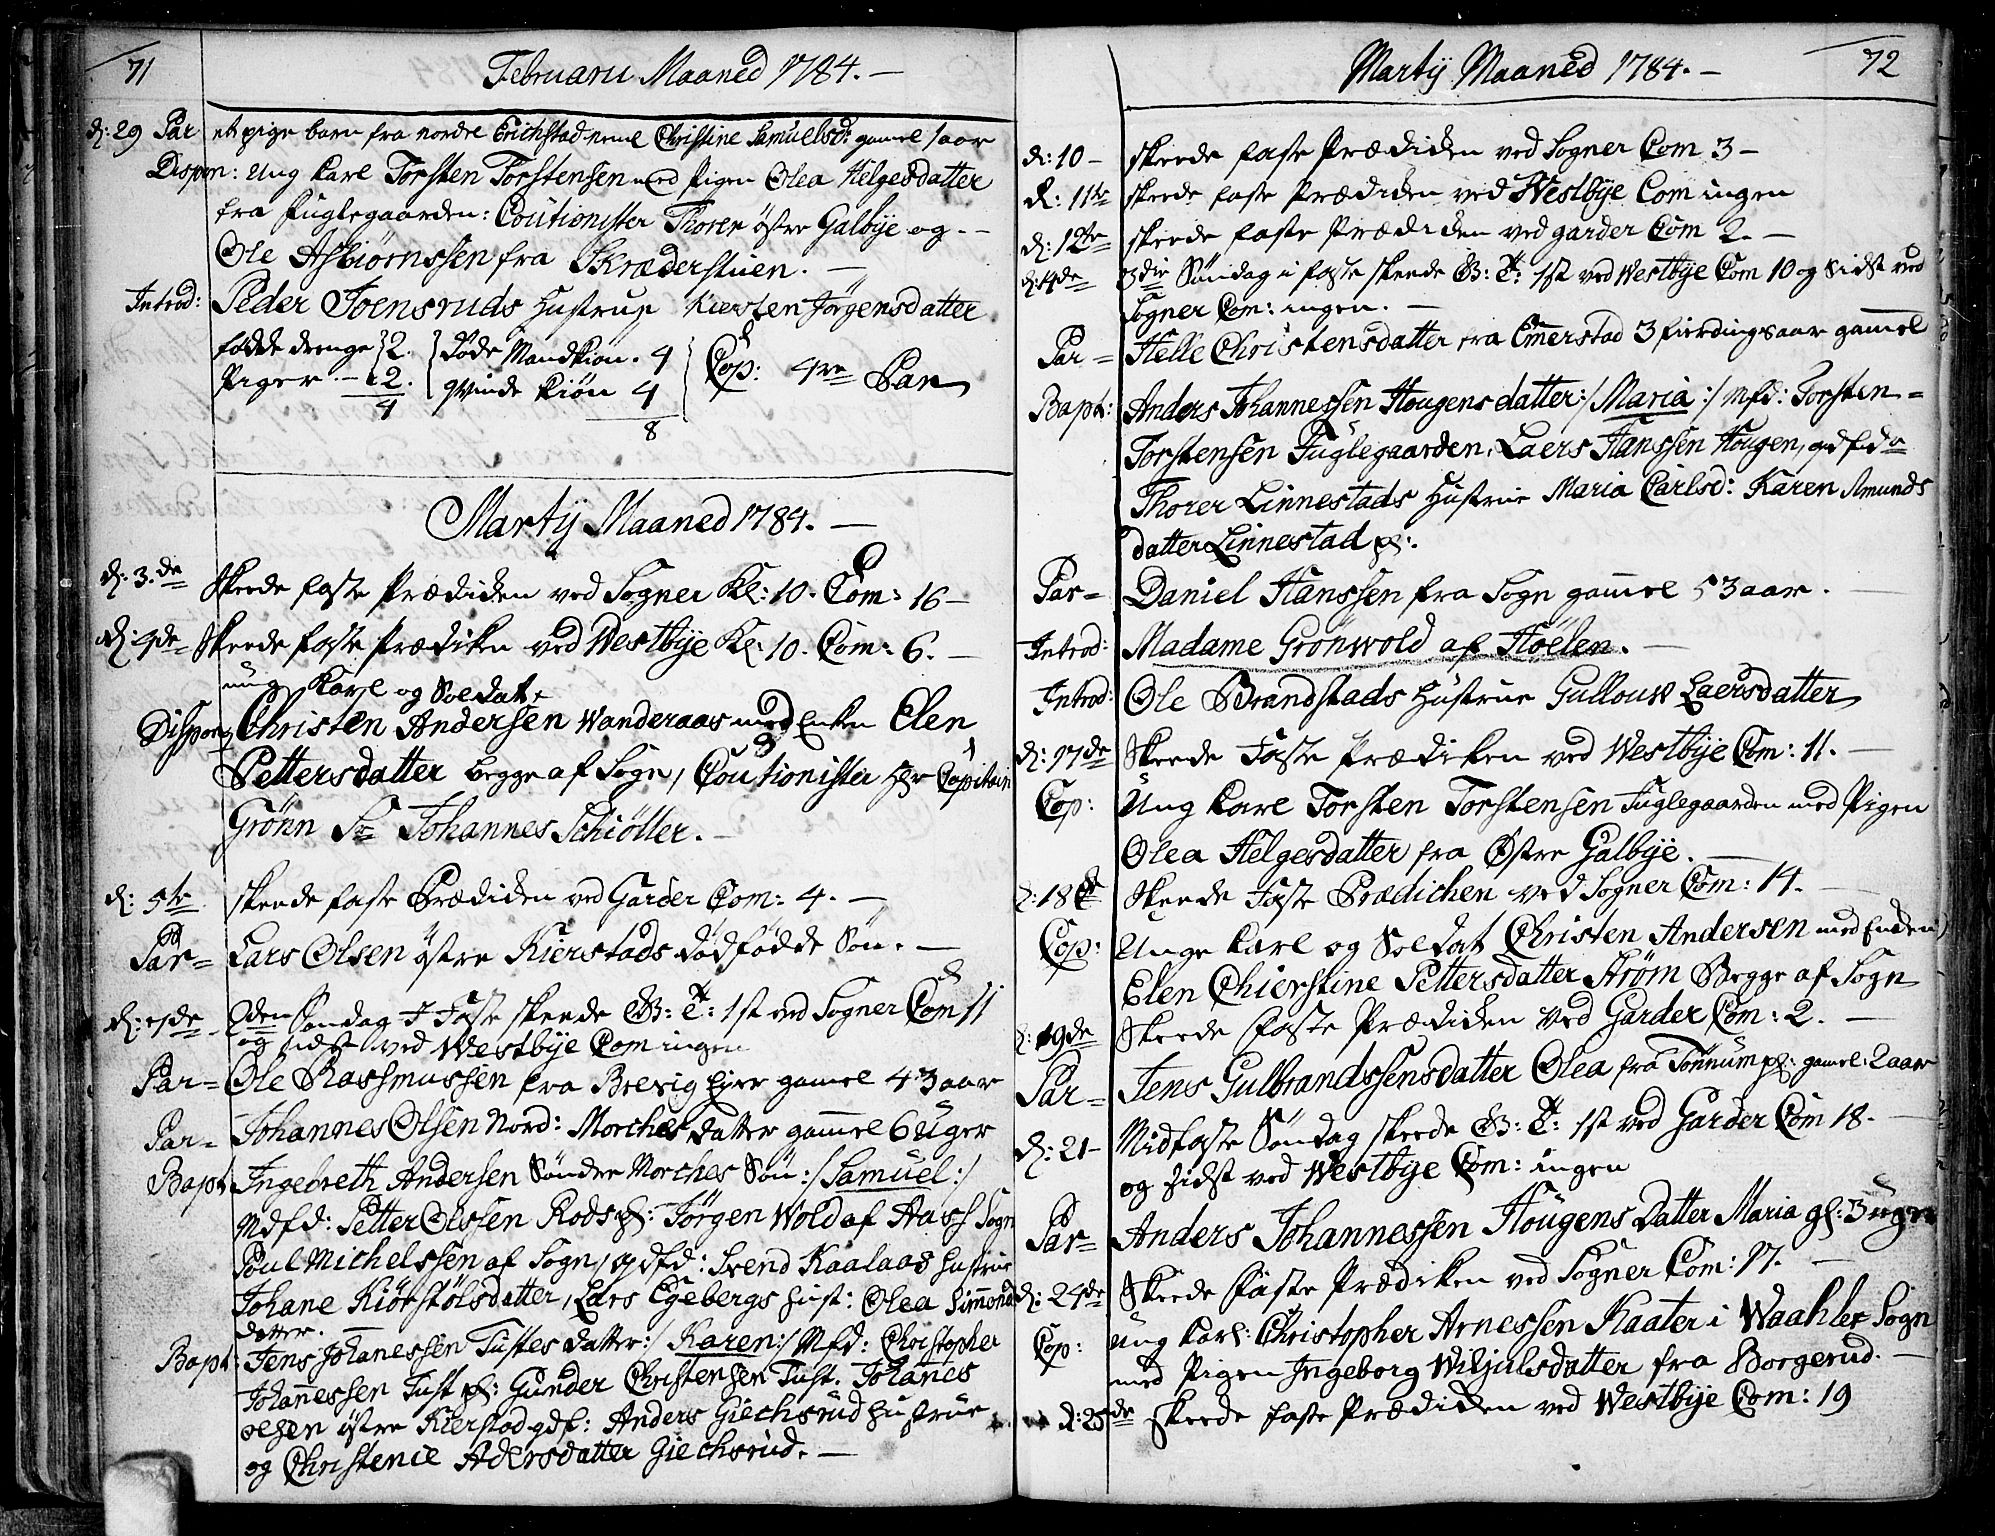 71
Februarii Maaned 1784. —
d: 29 Par et pige barn fra nordre Erichstad neml Christine Samuelsd: gamel 1 aar
Dispen: Ung karl Torsten Torstensen med Pigen Olea Helgesdatter
fra Fuglegaarden: Coutionister Thorer östre Galbÿe og - -
Ole Asbiørnssen fra Skræderstuen. —
Introd: Peder Joensruds Hustrue Kiersten Jörgensdatter
födde drenge 2. Döde Mandkiön. 4 Cop: 4re Par
Piger. — 2. qvinde kiön 4
4
8
Martÿ Maaned 1784. —
d: 3.de Skeede faste Prædiken ved Sogner Kl: 10. Com: 16 —
d: 4de Skeede faste Prædiken ved Westbÿe Kl: 10. Com: 6. —
ung Karl og Soldat
Dispen Christen Andersen Wanderaas med Enken Elen
Pettersdatter begge af Sogn, Coutionister Hr Capitain
Grönn Sr Johannes Schiöller. —
d: 5te skeede faste Prædiken ved Garder Com: 4. —
Par = Lars Olsen östre Kierstads dödfödde Sön. —
d: 7de 2den Söndag I Faste skeede G: T: 1st ved Sogner Com 11
og sidst ved Westbÿe Com ingen
Par = Ole Rassmussen fra Brevig gamel 43 aar
Par = Johannes Olsen Nord: Morches datter gammel 6 Uger
Bapt Ingebreth Andersen Söndre Morches Sön :/ Samuel :/
Mdfd: Petter Olssen Rods pl: Jörgen Wold af Aass Sogn
Poul Michelssen af Sogn, qdfd: Svend Kaalaas Hustrue
Johane Kiörstölsdatter, Lars Egebergs Hust: Olea Simmonds
datter. —
Bapt: Jens Johanessen Tustes datter :/ Karen :/ Mfd: Christopher
Johannessen Tust pl: Gunder Christensen Tust. Johanes
olsen östre Kierstad qdf: Anders Giechsrud Hustrue
og Christence Adersdatter Giechsrud. —
Martÿ Maaned 1784. —
72
d: 10 — skeede faste Prædiken ved Sogner Com 3 —
d: 11te skeede faste Prædiken ved Westbÿe Com ingen
d: 12te skeede faste Prædiken ved garder Com 2. —
d: 14de 3die Söndag i faste skeede G: T: 1st ved Westbÿe Com 10 og sidst ved
Sogner Com: ingen. —
Par = Helle Christensdatter fra Emerstad 3 fierdingsaar gammel
Bapt: Anders Johannessen Hougens datter :/ Maria :/ Mfd: Torsten =
Torstensen Fuglegaarden, Laers Hanssen Hougen, qdfd=
Thorer Linnestads Hustrue Maria Carlsd: Karen Amunds
datter Linnestad pl:.
Par = Daniel Hanssen fra Sogn gammel 53 aar. —
Introd: Madame Grönwold af Höelen. —
Introd: Ole Brandstads Hustrue Gullouw Laersdatter
d: 17de Skeede Faste Prædiken ved Westbÿe Com: 11. —
Cop: Ung karl Torsten Torstensen Fuglegaarden med Pigen
Olea Helgesdatter fra Östre Galbÿe. —
d: 18de Skeede Faste Prædichen ved Sogner Com: 14. —
Cop: Unge karl og Soldat Christen Andersen med Enken
Elen Chierstine Pettersdatter Ström Begge af Sogn
d: 19de Skeede faste Prædiken ved Garder Com: 2. —
Par = Jens Gulbrandssens datter Olea fra Tönnum pl: gamel: 2 aar
d: 21 — Midfaste Söndag skeede G: T: 1st ved Garder Com 18. —
og sidst ved Westbÿe Com: ingen
Par = Anders Johannessen Hougens Datter Maria gl: 3 uger
d: 24de Skeede faste Prædiken ved Sogner Com: 17. —
Cop: Ung karl: Christopher Arnessen Kaater i Waahler Sogn
med Pigen Ingeborg Wiljulsdatter fra Borgerud. —
d: 25de skeede faste Prædiken ved Westbÿe Com: 19